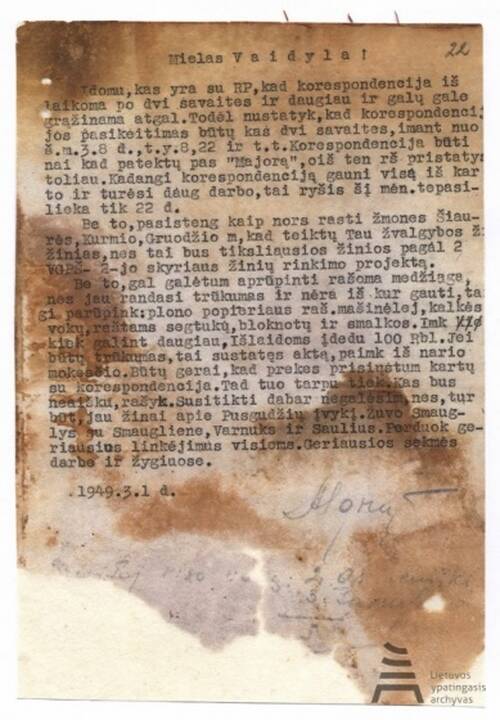 22
Mielas Vaidyla!
Įdomu,kas yra su RP,kad korespondencija iš
laikoma po dvi savaites ir daugiau ir galų gale
grąžinama atgal.Todėl nustatyk,kad korespondenci
jos pasikeitimas būtų kas dvi savaites,imant nuo
š.m.3.8 d.,t.y.8,22 ir t.t.Korespondencija būti
nai kad patektų pas "Majorą",oiš ten rš pristatys
toliau.Kadangi korespondenciją gauni visą iš kar
to ir turėsi daug darbo,tai ryšis šį mėn.tepasi-
lieka tik 22 d.
Be to,pasisteng kaip nors rasti žmones Šiau-
rės,Kurmio,Gruodžio m,kad teiktų Tau žvalgybos ži
žinias,nes tai bus tiksliausios žinios pagal 2
VGPŠ- 2-jo skyriaus žinių rinkimo projektą.
Be to,gal galėtum aprūpinti rašoma medžiaga,
nes jau randasi trūkumas ir nėra iš kur gauti,tai
gi parūpink:plono popieriaus raš.mašinėlej,kalkės
vokų,raštams segtukų,bloknotų ir smalkos.Imk
kiek galint daugiau,Išlaidoms įdedu 100 Rbl.Jei
būtų trūkumas,tai sustatęs aktą,paimk iš nario
mokesčio.Būtų gerai,kad prekes prisiųstum kartų
su korespondencija.Tad tuo tarpu tiek.Kas bus
neaišku,rašyk.Susitikti dabar negalėsim,nes,tur
būt,jau žinai apie Pusgudžių įvykį.Žuvo Smaug-
lys su Smaugliene,Varnuks ir Saulius.Perduok ge-
riausius linkėjimus visioms.Geriausios sėkmės
darbe ir žygiuose.
1949.3.1 d.
Lietuvos
ypatingasis
archyvas